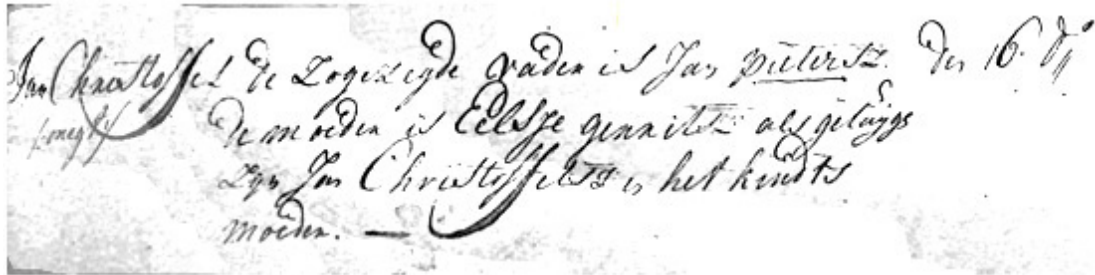 Jan Christoffel de zogezegde vader is Jan Pietersz. den 16 d°
de moeder is Eelsje gerritsz als getuijge
zyn Jan Christoffelsz en het kindts
moeder. —